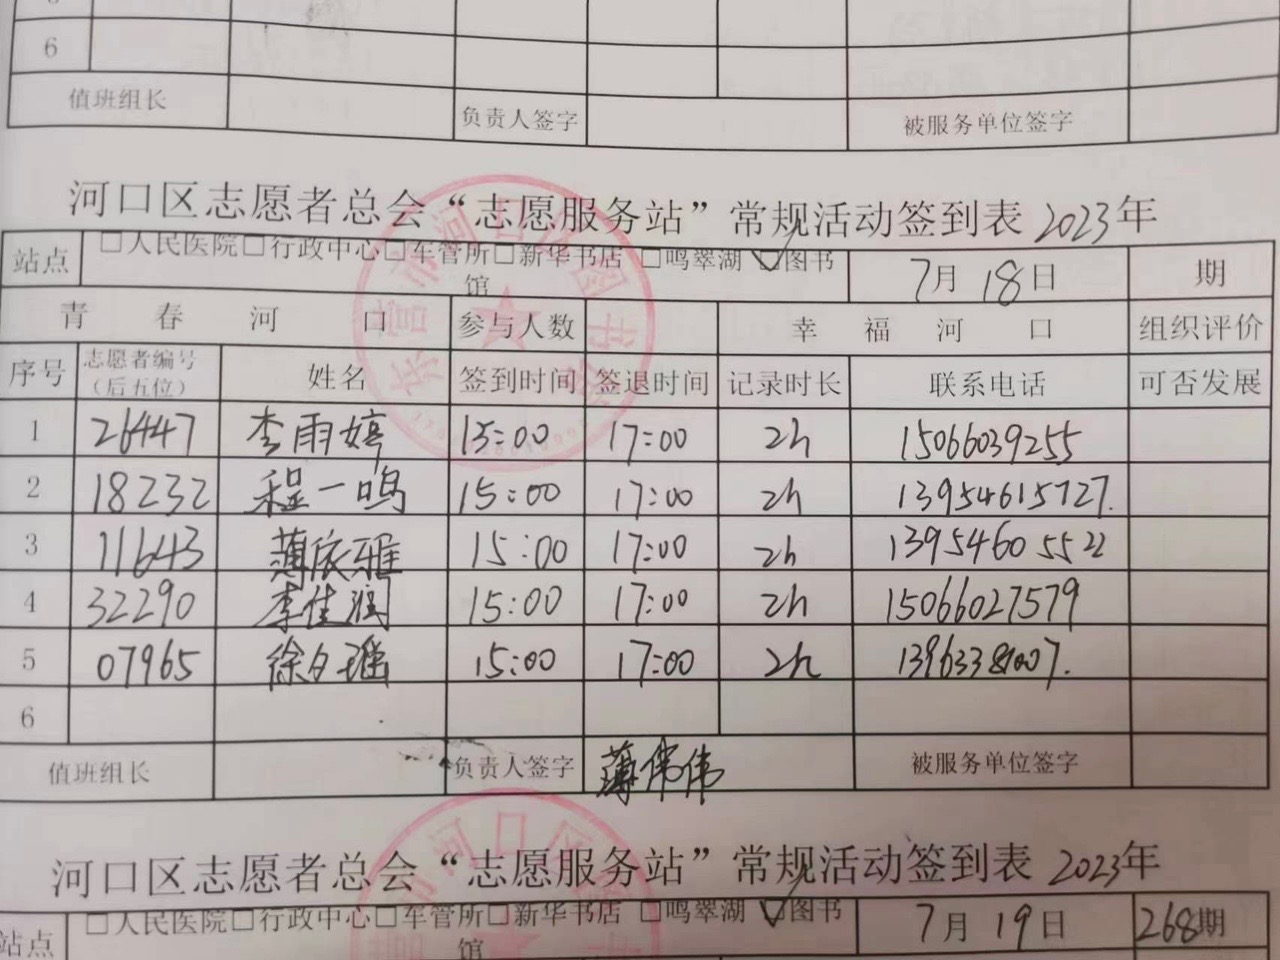 6
值班组长 负责人签字 被服务单位签字
河口区志愿者总会“志愿服务站”常规活动签到表 2023年
站点 □人民医院□行政中心□车管所□新华书店 □鸣翠湖 ☑图书馆 7月18日 期
青春河口 参与人数 幸福河口 组织评价
序号 志愿者编号（后五位） 姓名 签到时间 签退时间 记录时长 联系电话 可否发展
1 26447 李雨婷 15:00 17:00 2h 15066039255
2 18232 程一鸣 15:00 17:00 2h 13954615727.
3 11643 薄依雅 15:00 17:00 2h 13954605522
4 32290 李佳润 15:00 17:00 2h 15066027579
5 07965 徐夕瑶 15:00 17:00 2h
6
值班组长 负责人签字 薄伟伟 被服务单位签字
河口区志愿者总会“志愿服务站”常规活动签到表 2023年
站点 □人民医院□行政中心□车管所□新华书店 □鸣翠湖 ☑图书馆 7月19日 268期